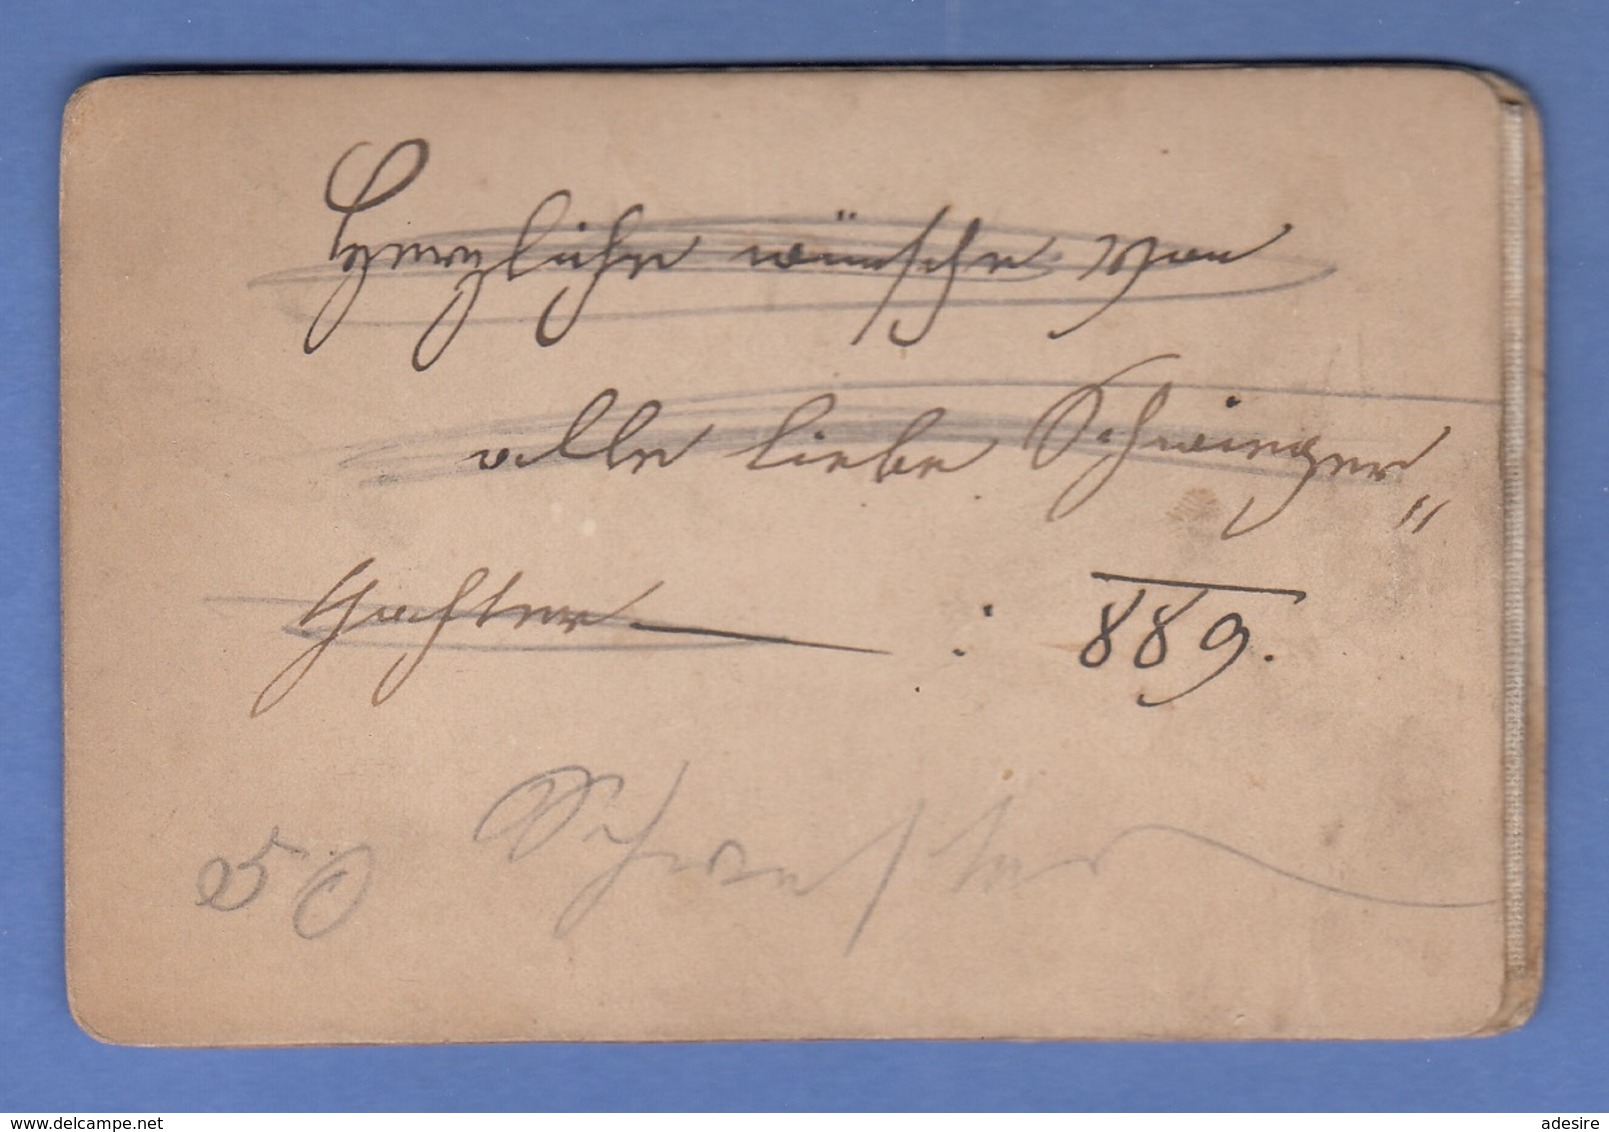 Herzliche wünsche von
alle liebe Schwieger„
Tochter : 889.
50 Schwester
www.delcampe.net
adesire